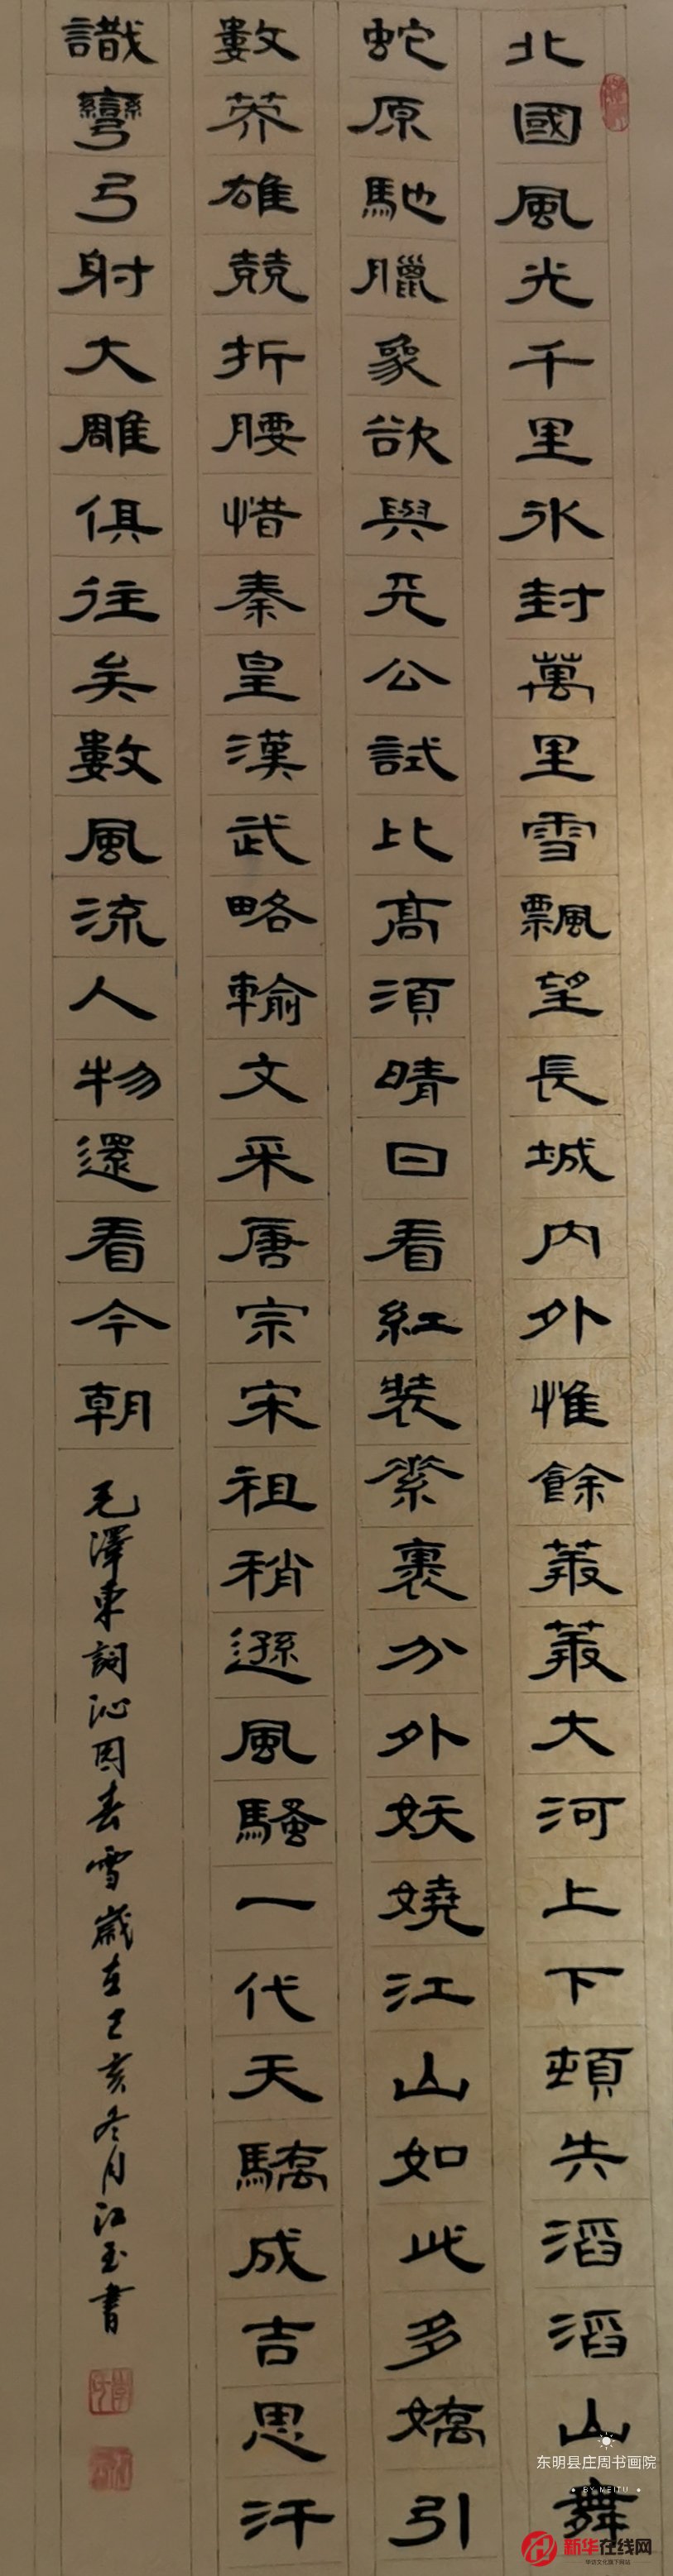 北國風光千里冰封萬里雪飄望長城内外惟餘莽莽大河上下頓失滔滔山舞
蛇原馳臘象欲與天公試比高須晴日看紅裝素裹分外妖嬈江山如此多嬌引
數英雄競折腰惜秦皇漢武略輸文采唐宗宋祖稍遜風騷一代天驕成吉思汗
識彎弓射大雕俱往矣數風流人物還看今朝
毛澤東詞沁園春雪歲在己亥冬月江玉書
东明县庄周书画院
BY MEITU
新华在线网